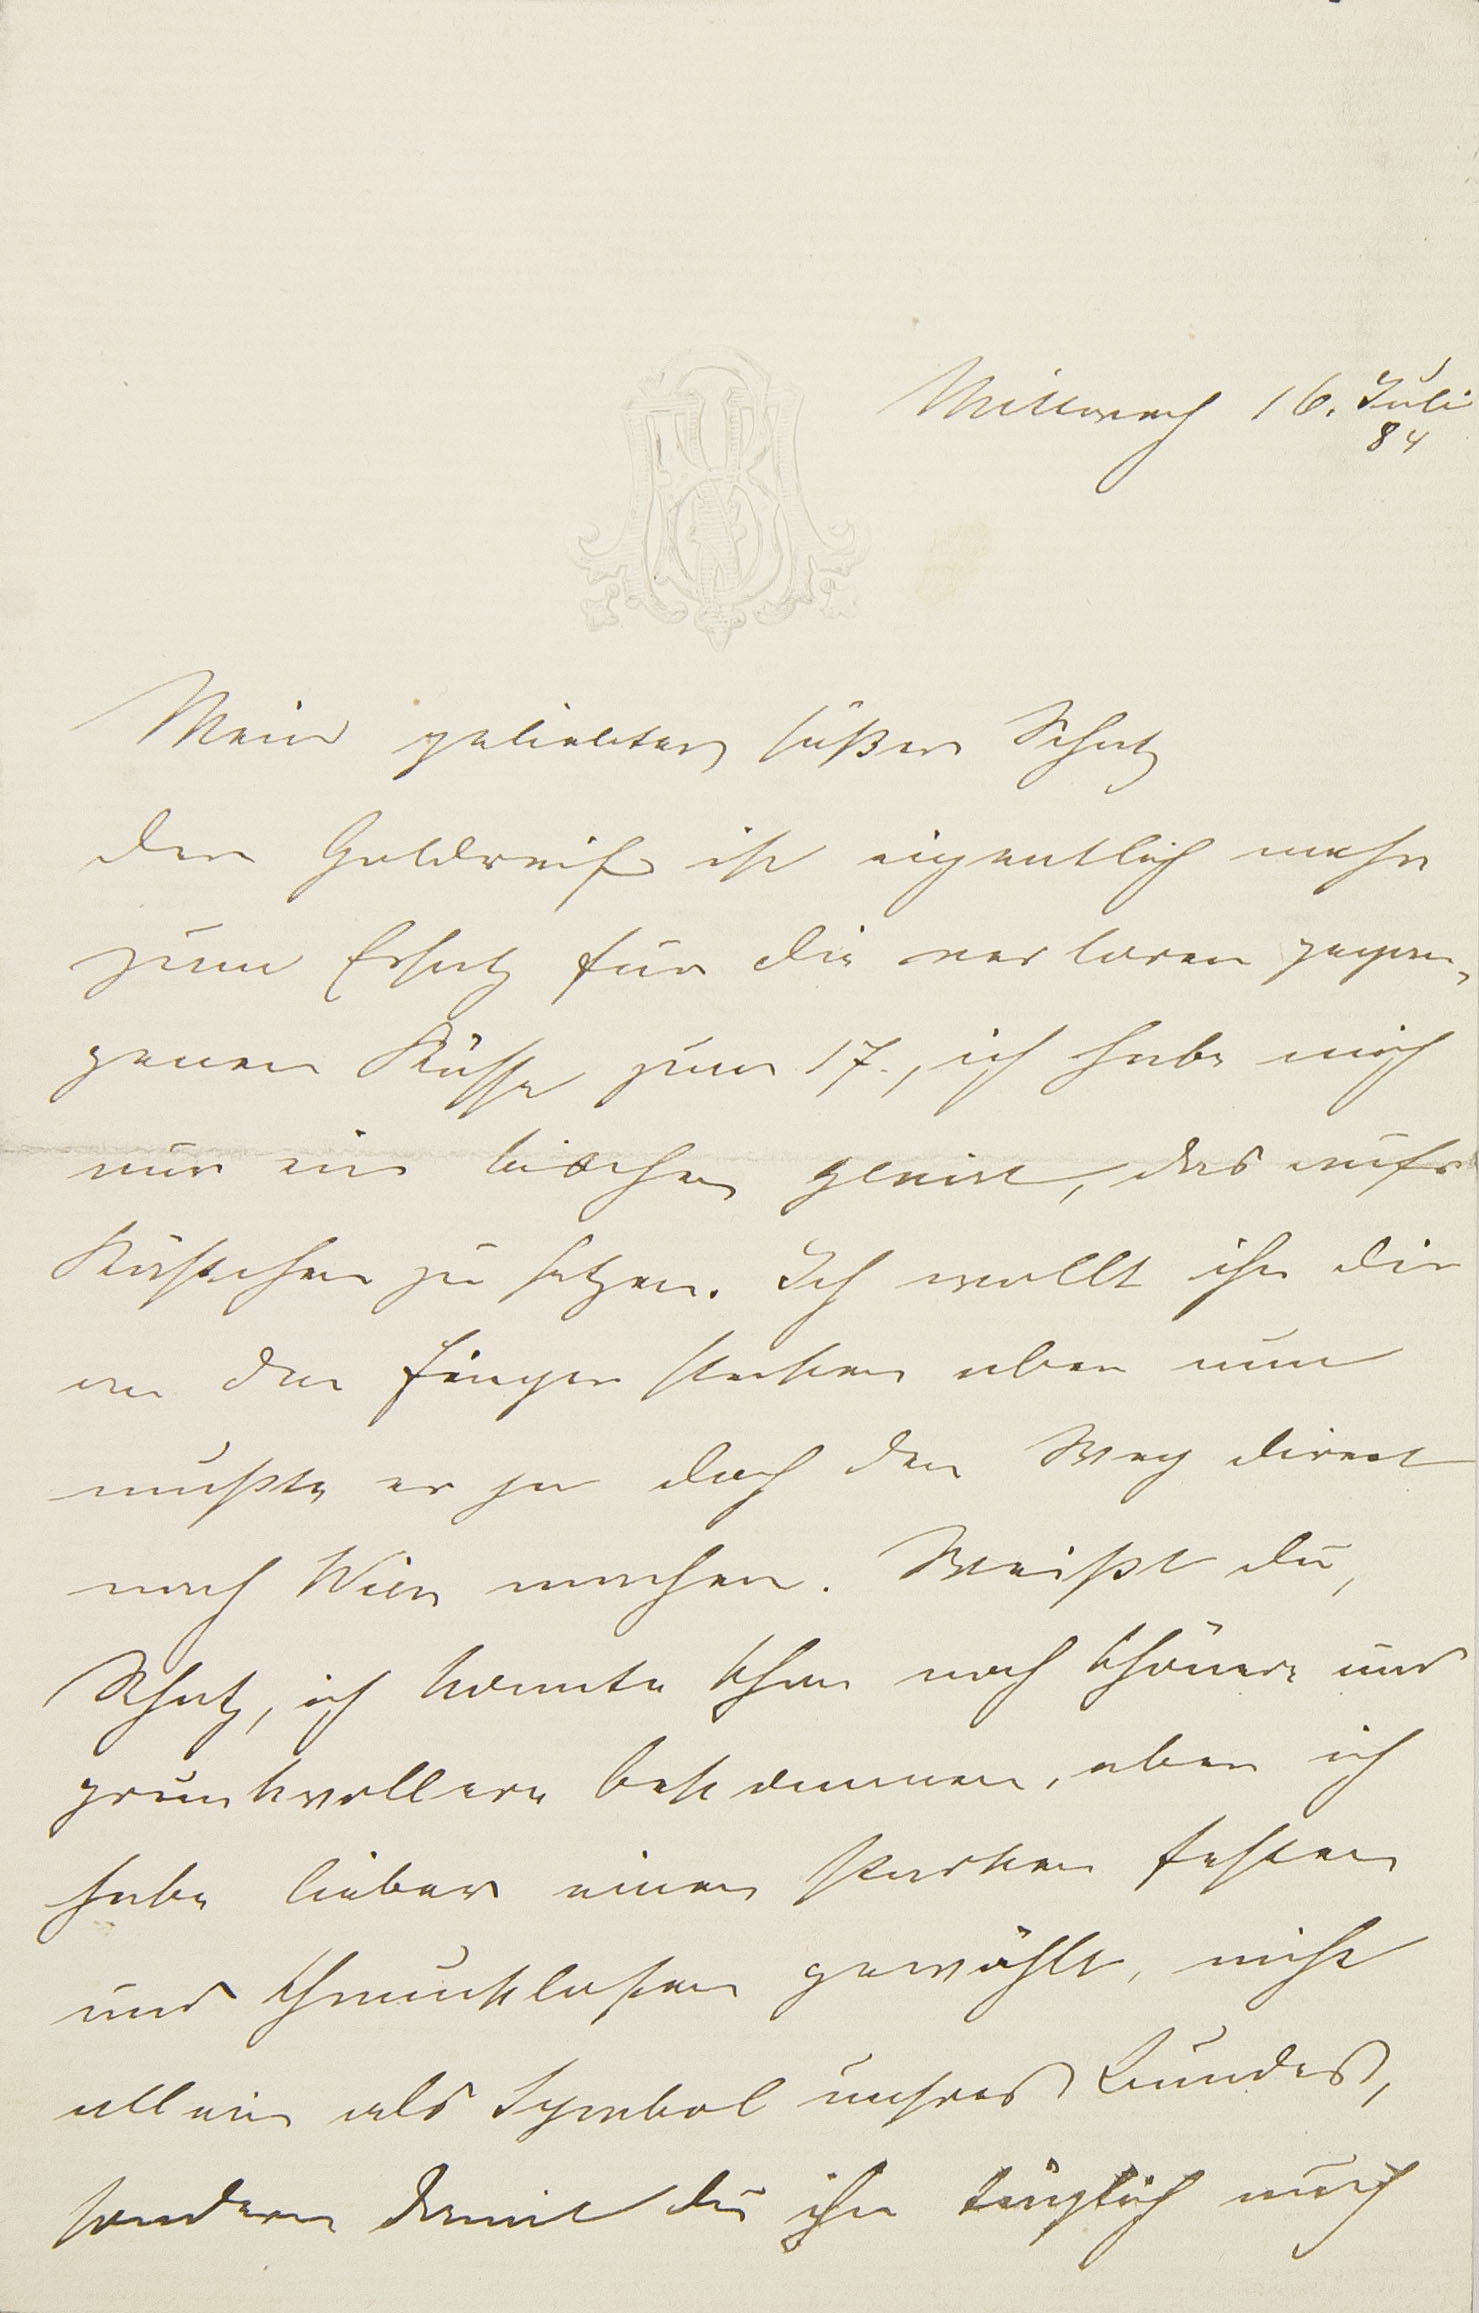 Mittwoch 16. Juli
84
Mein geliebter süßer Schatz
der Goldreif ist eigentlich mehr
zum Ersatz für die verloren gegan-
genen Küsse zum 17., ich habe mich
nur ein bischen genirt, das aufs
Kästchen zu setzen. Ich wollt ihn dir
an den Finger stecken aber nun
mußte er ja doch den Weg direct
nach Wien machen. Weißt du,
Schatz, ich konnte schon noch schönere und
prunkvollere bekommen, aber ich
habe lieber einen starken festen
und schmucklosen gewählt, nicht
allein als Symbol unsres Bundes,
sondern damit du ihn täglich auch